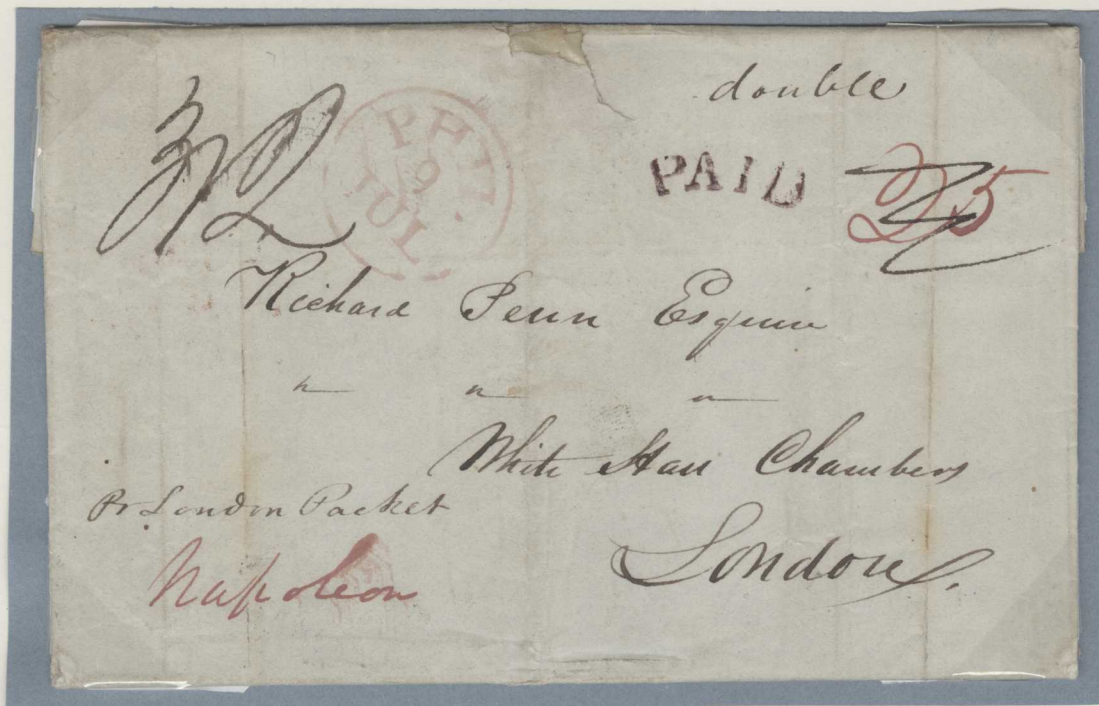 double
3/2
PHIL.
9
JUL
PAID
25
Richard Penn Esquire
" " "
White Hall Chambers
Pr London Packet
London.
Napoleon